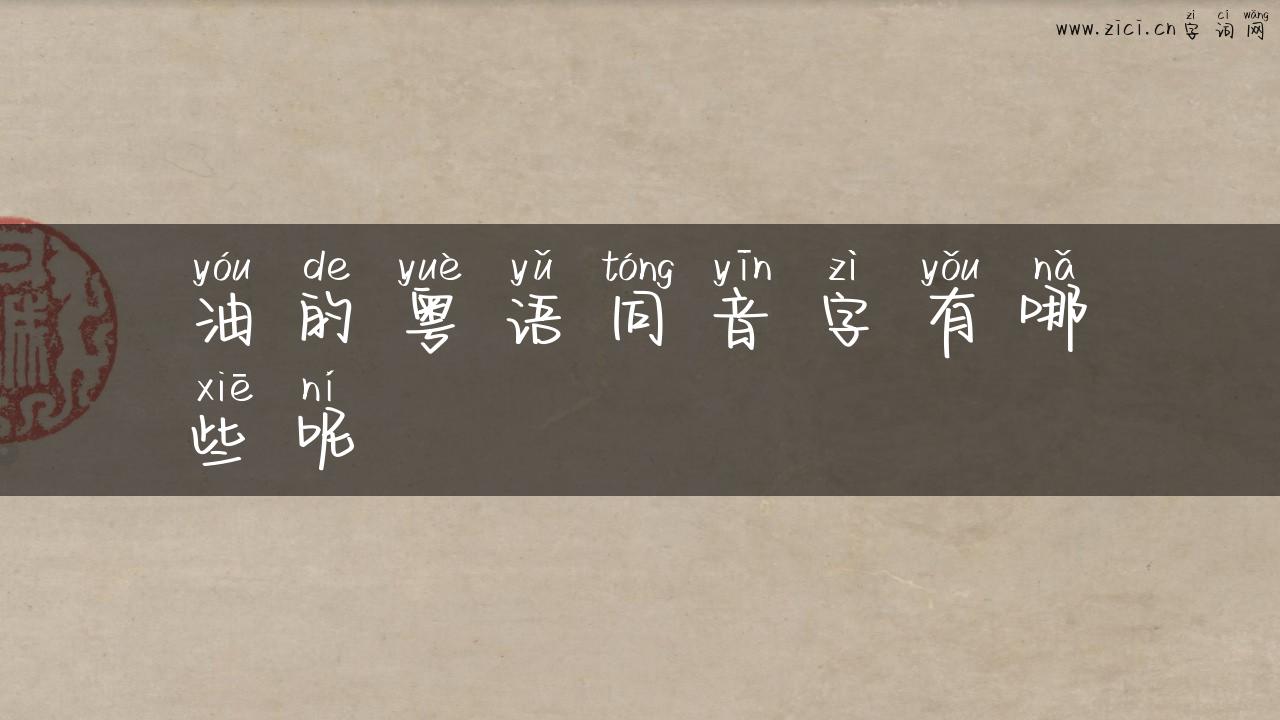 zì cí wǎng
www.zici.cn字词网
yóu de yuè yǔ tóng yīn zì yǒu nǎ
油的粤语同音字有哪
xiē ní
些呢